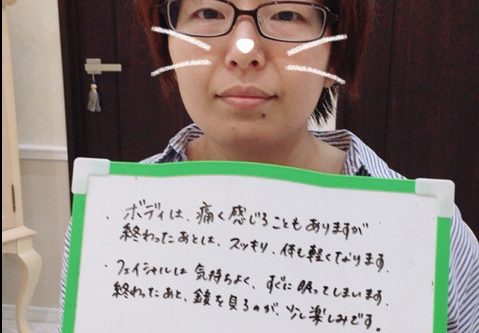 ・ボディは、痛く感じることもありますが
終わったあとは、スッキリ、体も軽くなります。
・フェイシャルは気持ちよく、すぐに眠ってしまいます。
終わったあと、鏡を見るのが、少し楽しみです。